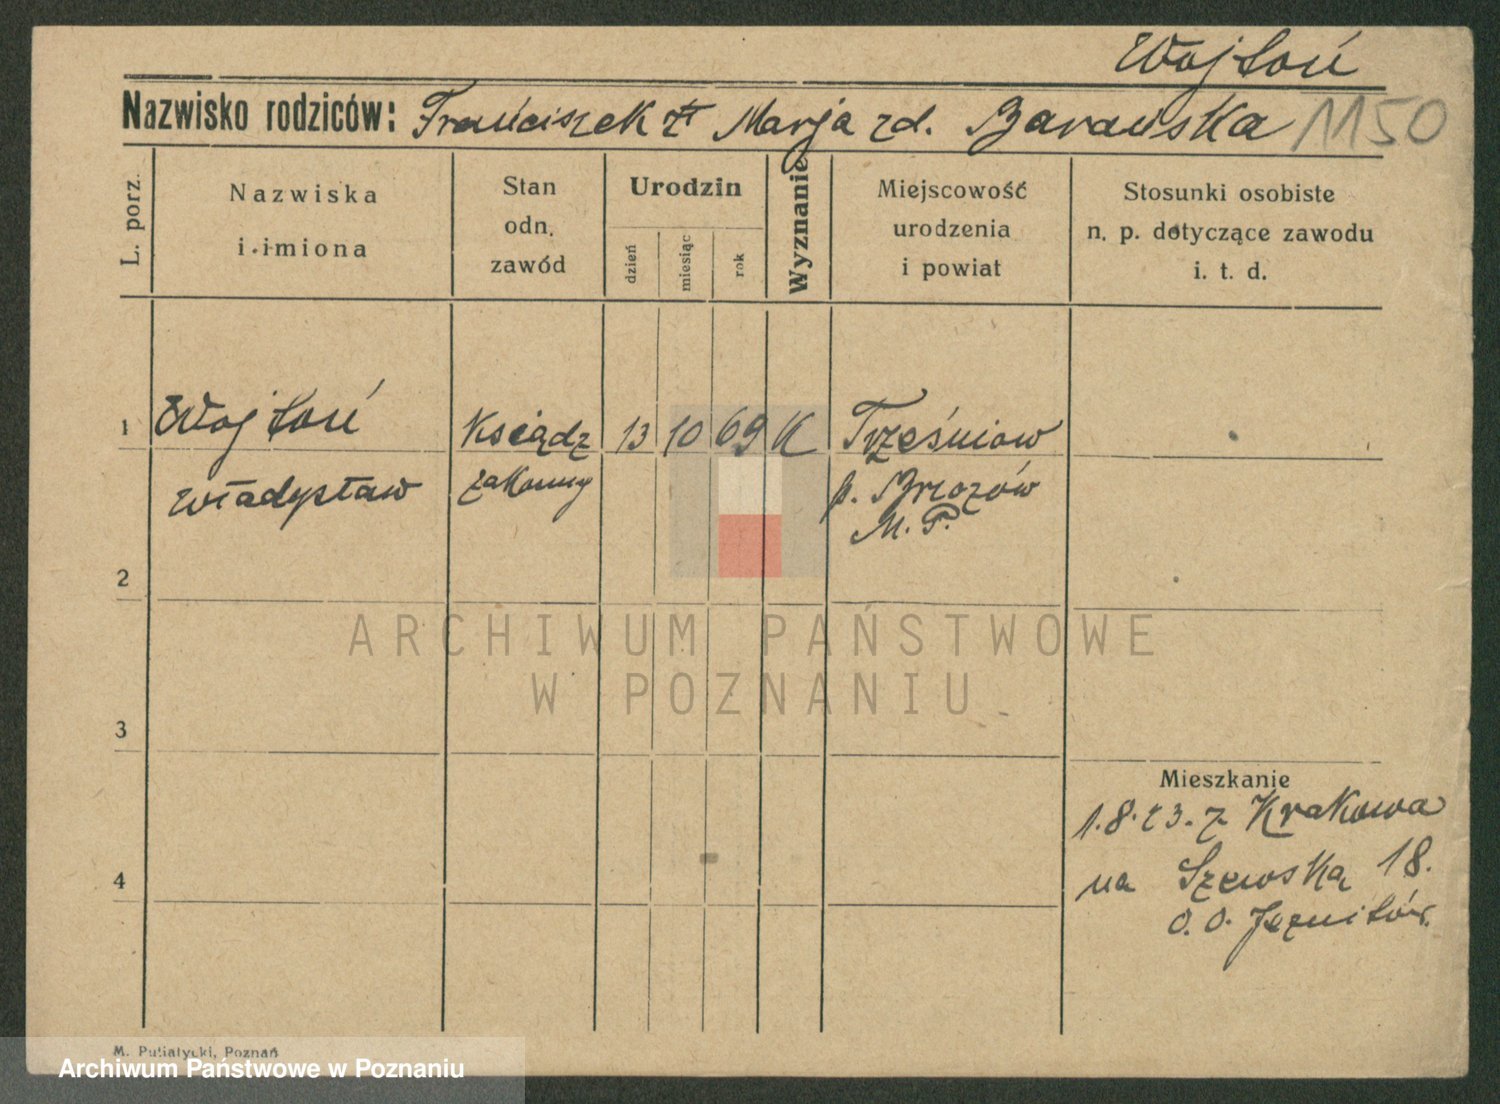 Wojtoń
Nazwisko rodziców: Franciszek Marja zd. Barańska 1150
L. porz.
Nazwiska
i imiona
Stan
odn.
zawód
Urodzin
dzień
miesiąc
rok
Wyznanie
Miejscowość
urodzenia
i powiat
Stosunki osobiste
n. p. dotyczące zawodu
i. t. d.
1 Wojtoń Ksiądz 13 10 69 K Trześniow
Władysław zakonny p. Brzozów
M. P.
2
3
4
Mieszkanie
1.8.23. z Krakowa
na Szewską 18.
O. O. Jezuitów.
M. Putiatycki, Poznań
ARCHIWUM PAŃSTWOWE
W POZNANIU
Archiwum Państwowe w Poznaniu